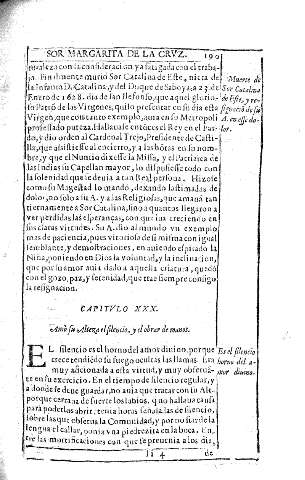 SOR MARGARITA DE LA CRVZ. 190
turaleza con la consideracion ya fatigada con el traba-
jo. Finalmente murio Sor Catalina de Este, nieta de
la Infanta D. Catalina, y del Duque de Saboya, a 23 de
Enero de 1628. dia de san Ilefonso, que aquel glorio-
so Patrō de las Virgenes, quiso presentar en su dia esta
Virgen, que con tanto exemplo, aun en su Metropoli
professado pureza. Hallavase entonces el Rey en el Par-
do, y dio orden al Cardenal Trejo, Presidente de Casti-
lla, que assistiesse al encierro, y a las honras en su nom-
bre, y que el Nuncio dixesse la Missa, y el Patriarca de
las Indias su Capellan mayor, lo dispusiesse todo con
la solenidad que se devia a tan Real persona. Hizose
como su Magestad lo mandò, dexando lastimadas de
dolor, no solo a su A. y a las Religiosas, que amavan
tiernamente a Sor Catalina, sino a quantos llegaron a
ver perdidas las esperanças, con que iva creciendo en
sus claras virtudes. Su A. dio al mundo vn exemplo
mas de paciencia, pues vitoriosa de si misma con igual
semblante, y demostraciones, en aviendo espirado la
Niña, poniendo en Dios la voluntad, y la inclinacion,
que por su amor avia dado a aquella criatura, quedò
con el gozo, paz, y serenidad, que trae siempre consigo
la resignacion.
Muerte de
Sor Catalina
de Este, y re-
signacion de su
A. en este do-
lor.
CAPITVLO XXX.
Amò su Alteza el silencio, y el obrar de manos.
EL silencio es el horno del amor divino, porque
crece tendido su fuego oculta las llamas. Fue
muy aficionada a esta virtud, y muy observan-
te en su exercicio. En el tiempo de silencio regular, y
a donde se deve guardar, no avia que tratar con su Alt.
porque cerrava de suerte los labios, que no hallava causa
para poderlos abrir: tenia horas señaladas de silencio,
sobre las que observa la Comunidad, y por no fiar de la
lengua el callar, ponia vna piedrezita en la boca. En-
tre las mortificaciones con que se prevenia a los dias,
Es el silencio
horno del a-
mor divino.
Ii 4 de